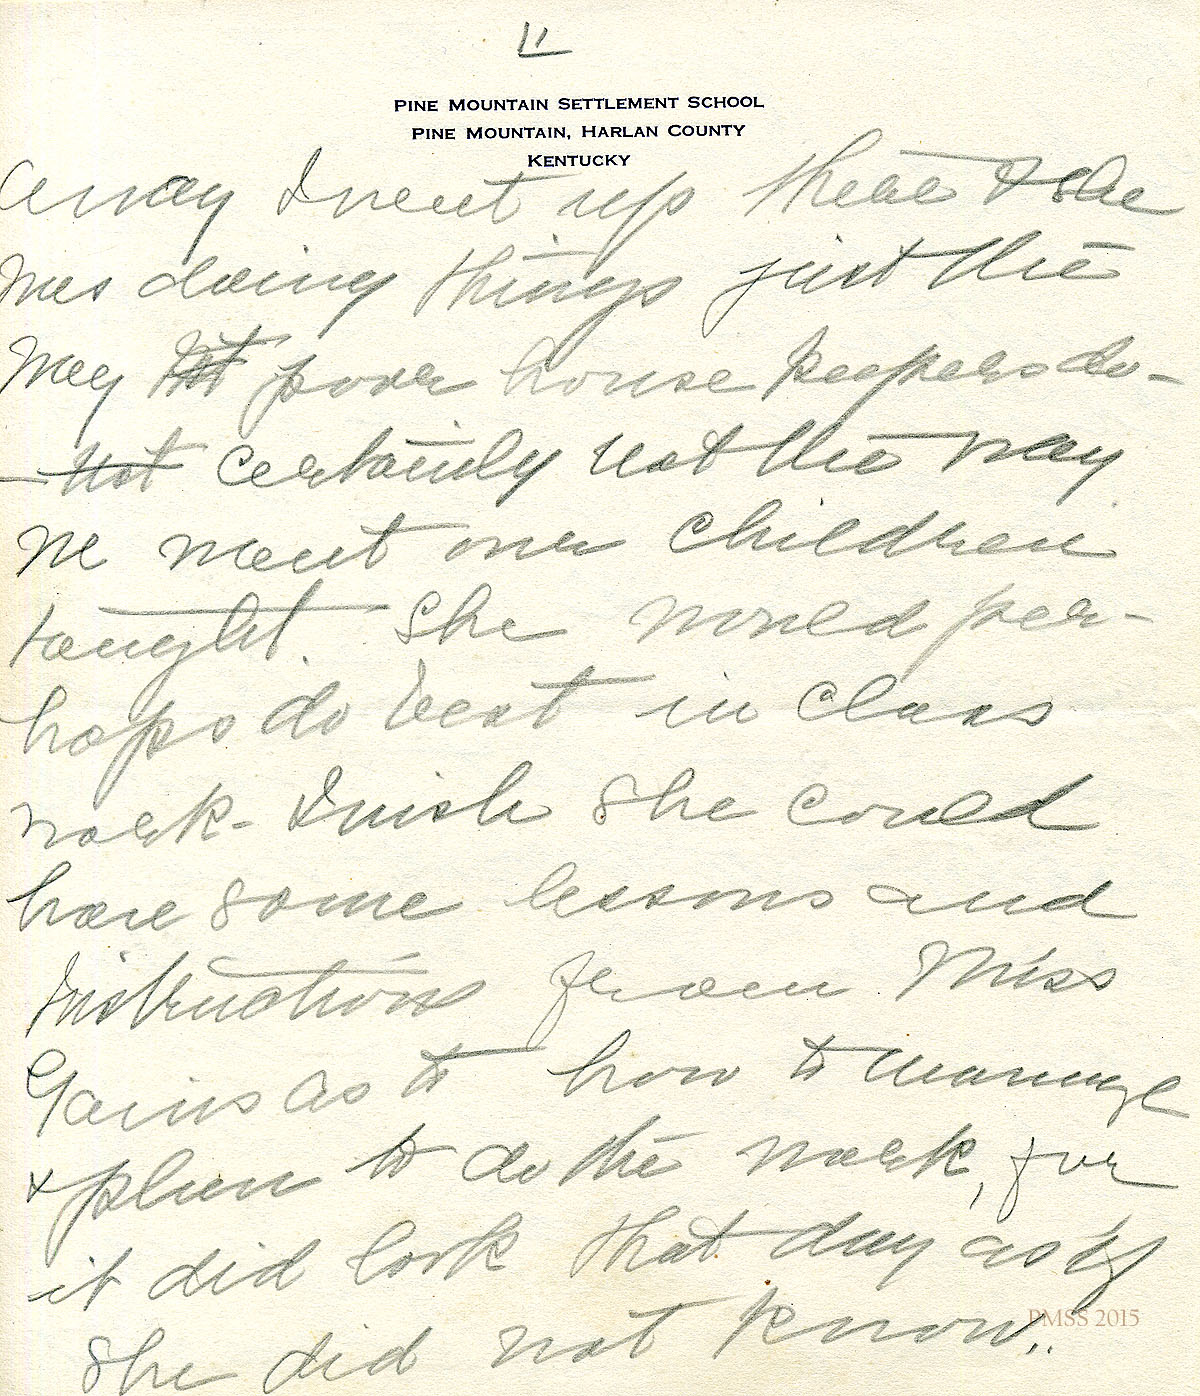 11
PINE MOUNTAIN SETTLEMENT SCHOOL
PINE MOUNTAIN, HARLAN COUNTY
KENTUCKY
away I went up there & she
was doing things just the
way poor house keepers do -
- not certainly not the way
we want our children
taught. She would per-
haps do best in class
work - I wish she could
have some lessons and
instructions from Miss
Gains as to how to manage
& plan to do the work, for
it did look that day as if
she did not know..
PMSS 2015